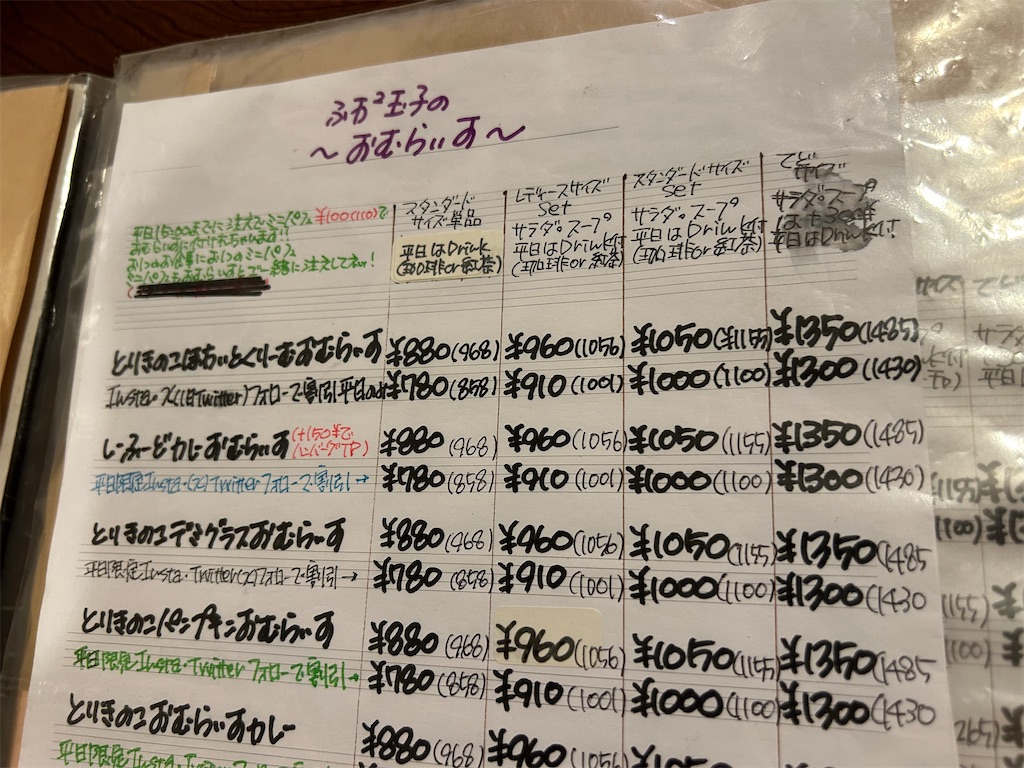 ふわ²玉子の
～おむらいす～
平日15:00までに注文でミニパフェ ¥100(110)で
おむらいすに付けれちゃいます!!
おむらいす1食におひとつのミニパフェ
ミニパフェもおむらいすと一緒に注文してネ!
スタンダード
サイズ単品
平日はDrink
(珈琲or紅茶)
レディースサイズ
set
サラダ。スープ
平日はDrink付
(珈琲or紅茶)
スタンダードサイズ
set
サラダ。スープ
平日はDrink付
(珈琲or紅茶)
でじ
サイズ
サラダ。スープ
は+300¥
平日はDrink付!
とりきのこほわいとくりーむおむらいす ¥880(968) ¥960(1056) ¥1050(¥1155) ¥1350(1485)
Insta・X(旧Twitter)フォローで割引平日のみ ¥780(858) ¥910(1001) ¥1000(1100) ¥1300(1430)
しーふーどカレーおむらいす (+150¥で ハンバーグTP) ¥880(968) ¥960(1056) ¥1050(1155) ¥1350(1485)
平日限定Insta・(X)Twitterフォローで割引→ ¥780(858) ¥910(1001) ¥1000(1100) ¥1300(1430)
とりきのこデミグラスおむらいす ¥880(968) ¥960(1056) ¥1050(1155) ¥1350(1485
平日限定Insta・Twitter(X)フォローで割引→ ¥780(858) ¥910(1001) ¥1000(1100) ¥1300(1430
とりきのこパンプキンおむらいす ¥880(968) ¥960(1056) ¥1050(1155) ¥1350(1485
平日限定Insta・Twitterフォローで割引→ ¥780(858) ¥910(1001) ¥1000(1100) ¥1300(1430
とりきのこおむらいすカレー ¥880(968) ¥960(1056)
平日限定Insta・Twitterフォローで割引